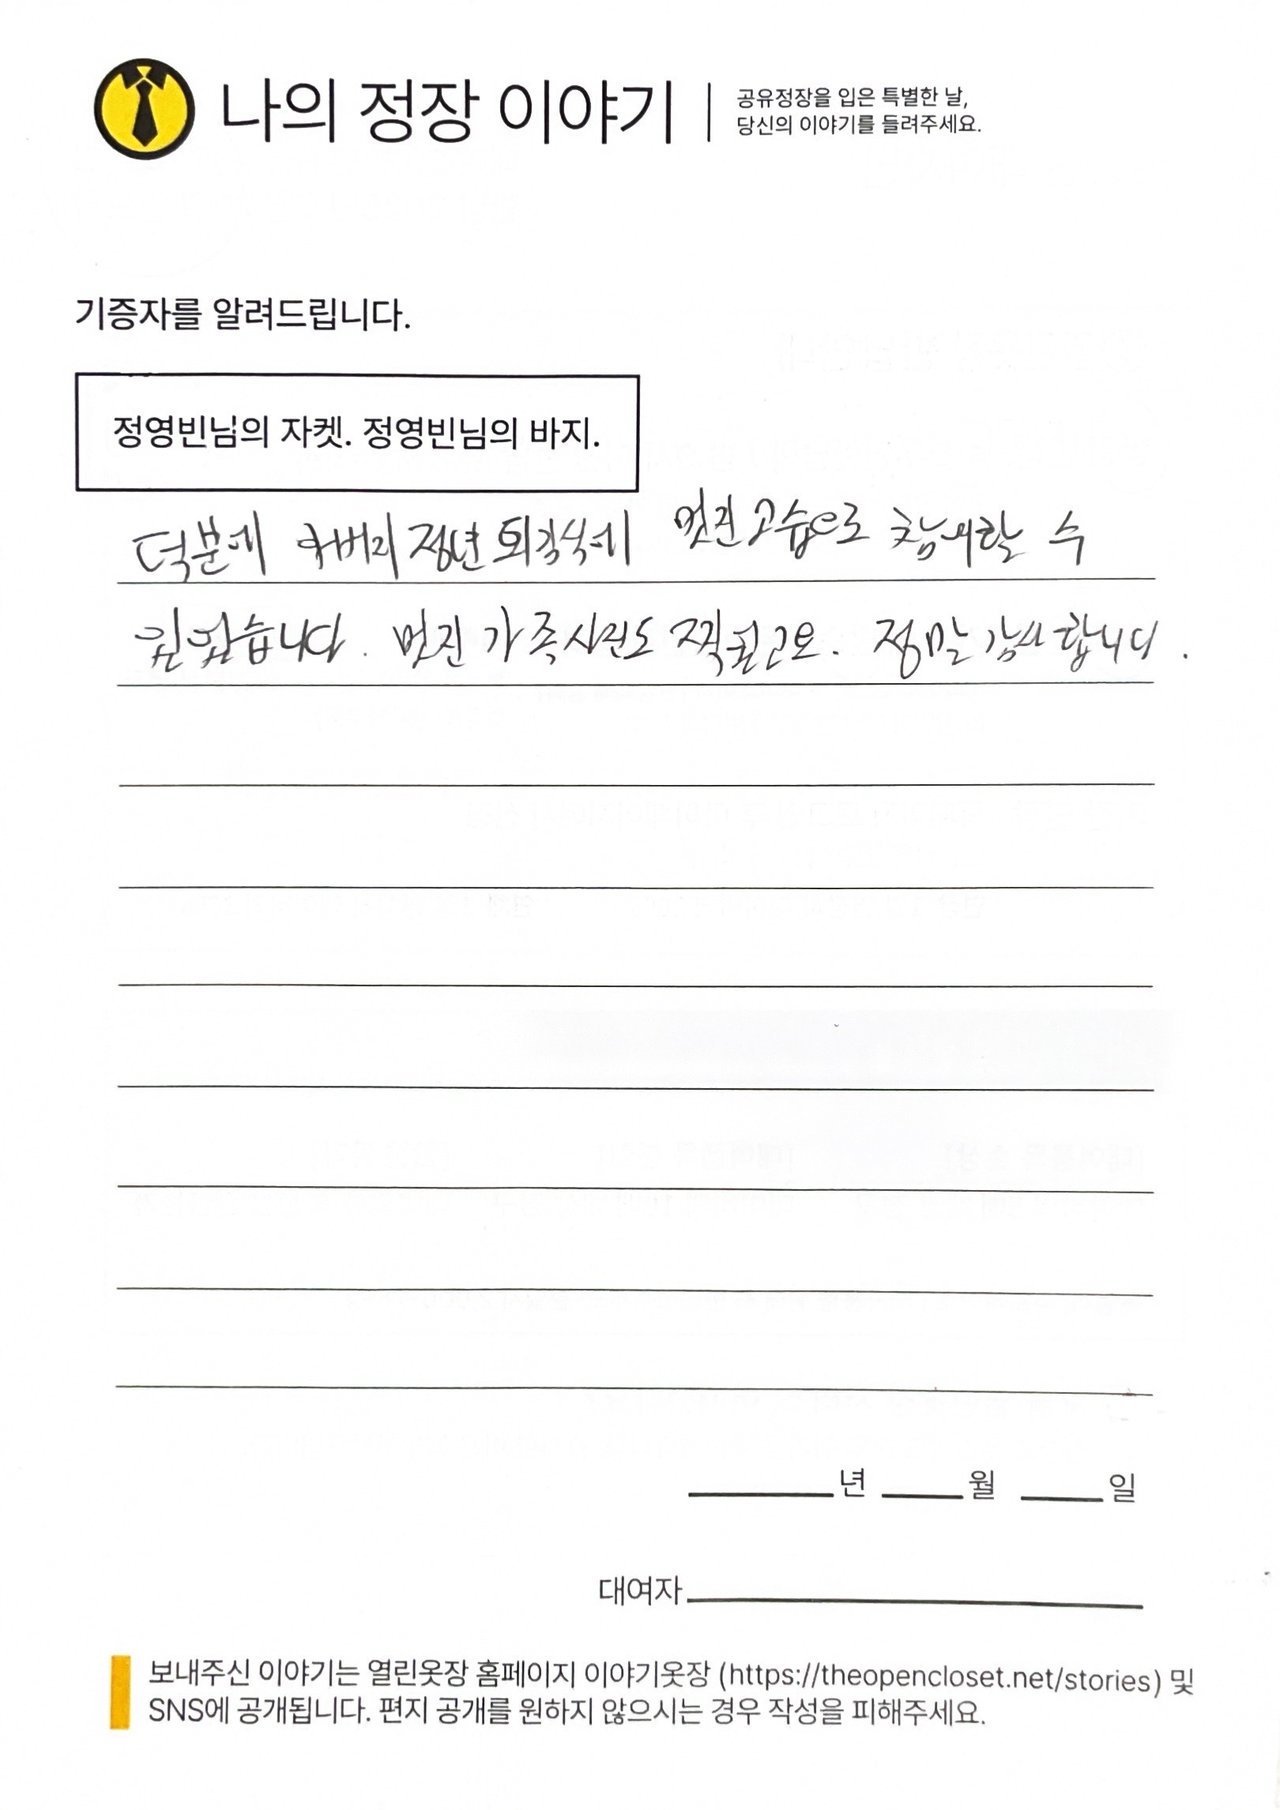 나의 정장 이야기
공유정장을 입은 특별한 날,
당신의 이야기를 들려주세요.
기증자를 알려드립니다.
정영빈님의 자켓. 정영빈님의 바지.
덕분에 아버지 정년 퇴직식에 멋진 모습으로 참여할 수
있었습니다. 멋진 가족사진도 찍었고요. 정말 감사합니다.
년 월 일
대여자
보내주신 이야기는 열린옷장 홈페이지 이야기옷장 (https://theopencloset.net/stories) 및
SNS에 공개됩니다. 편지 공개를 원하지 않으시는 경우 작성을 피해주세요.